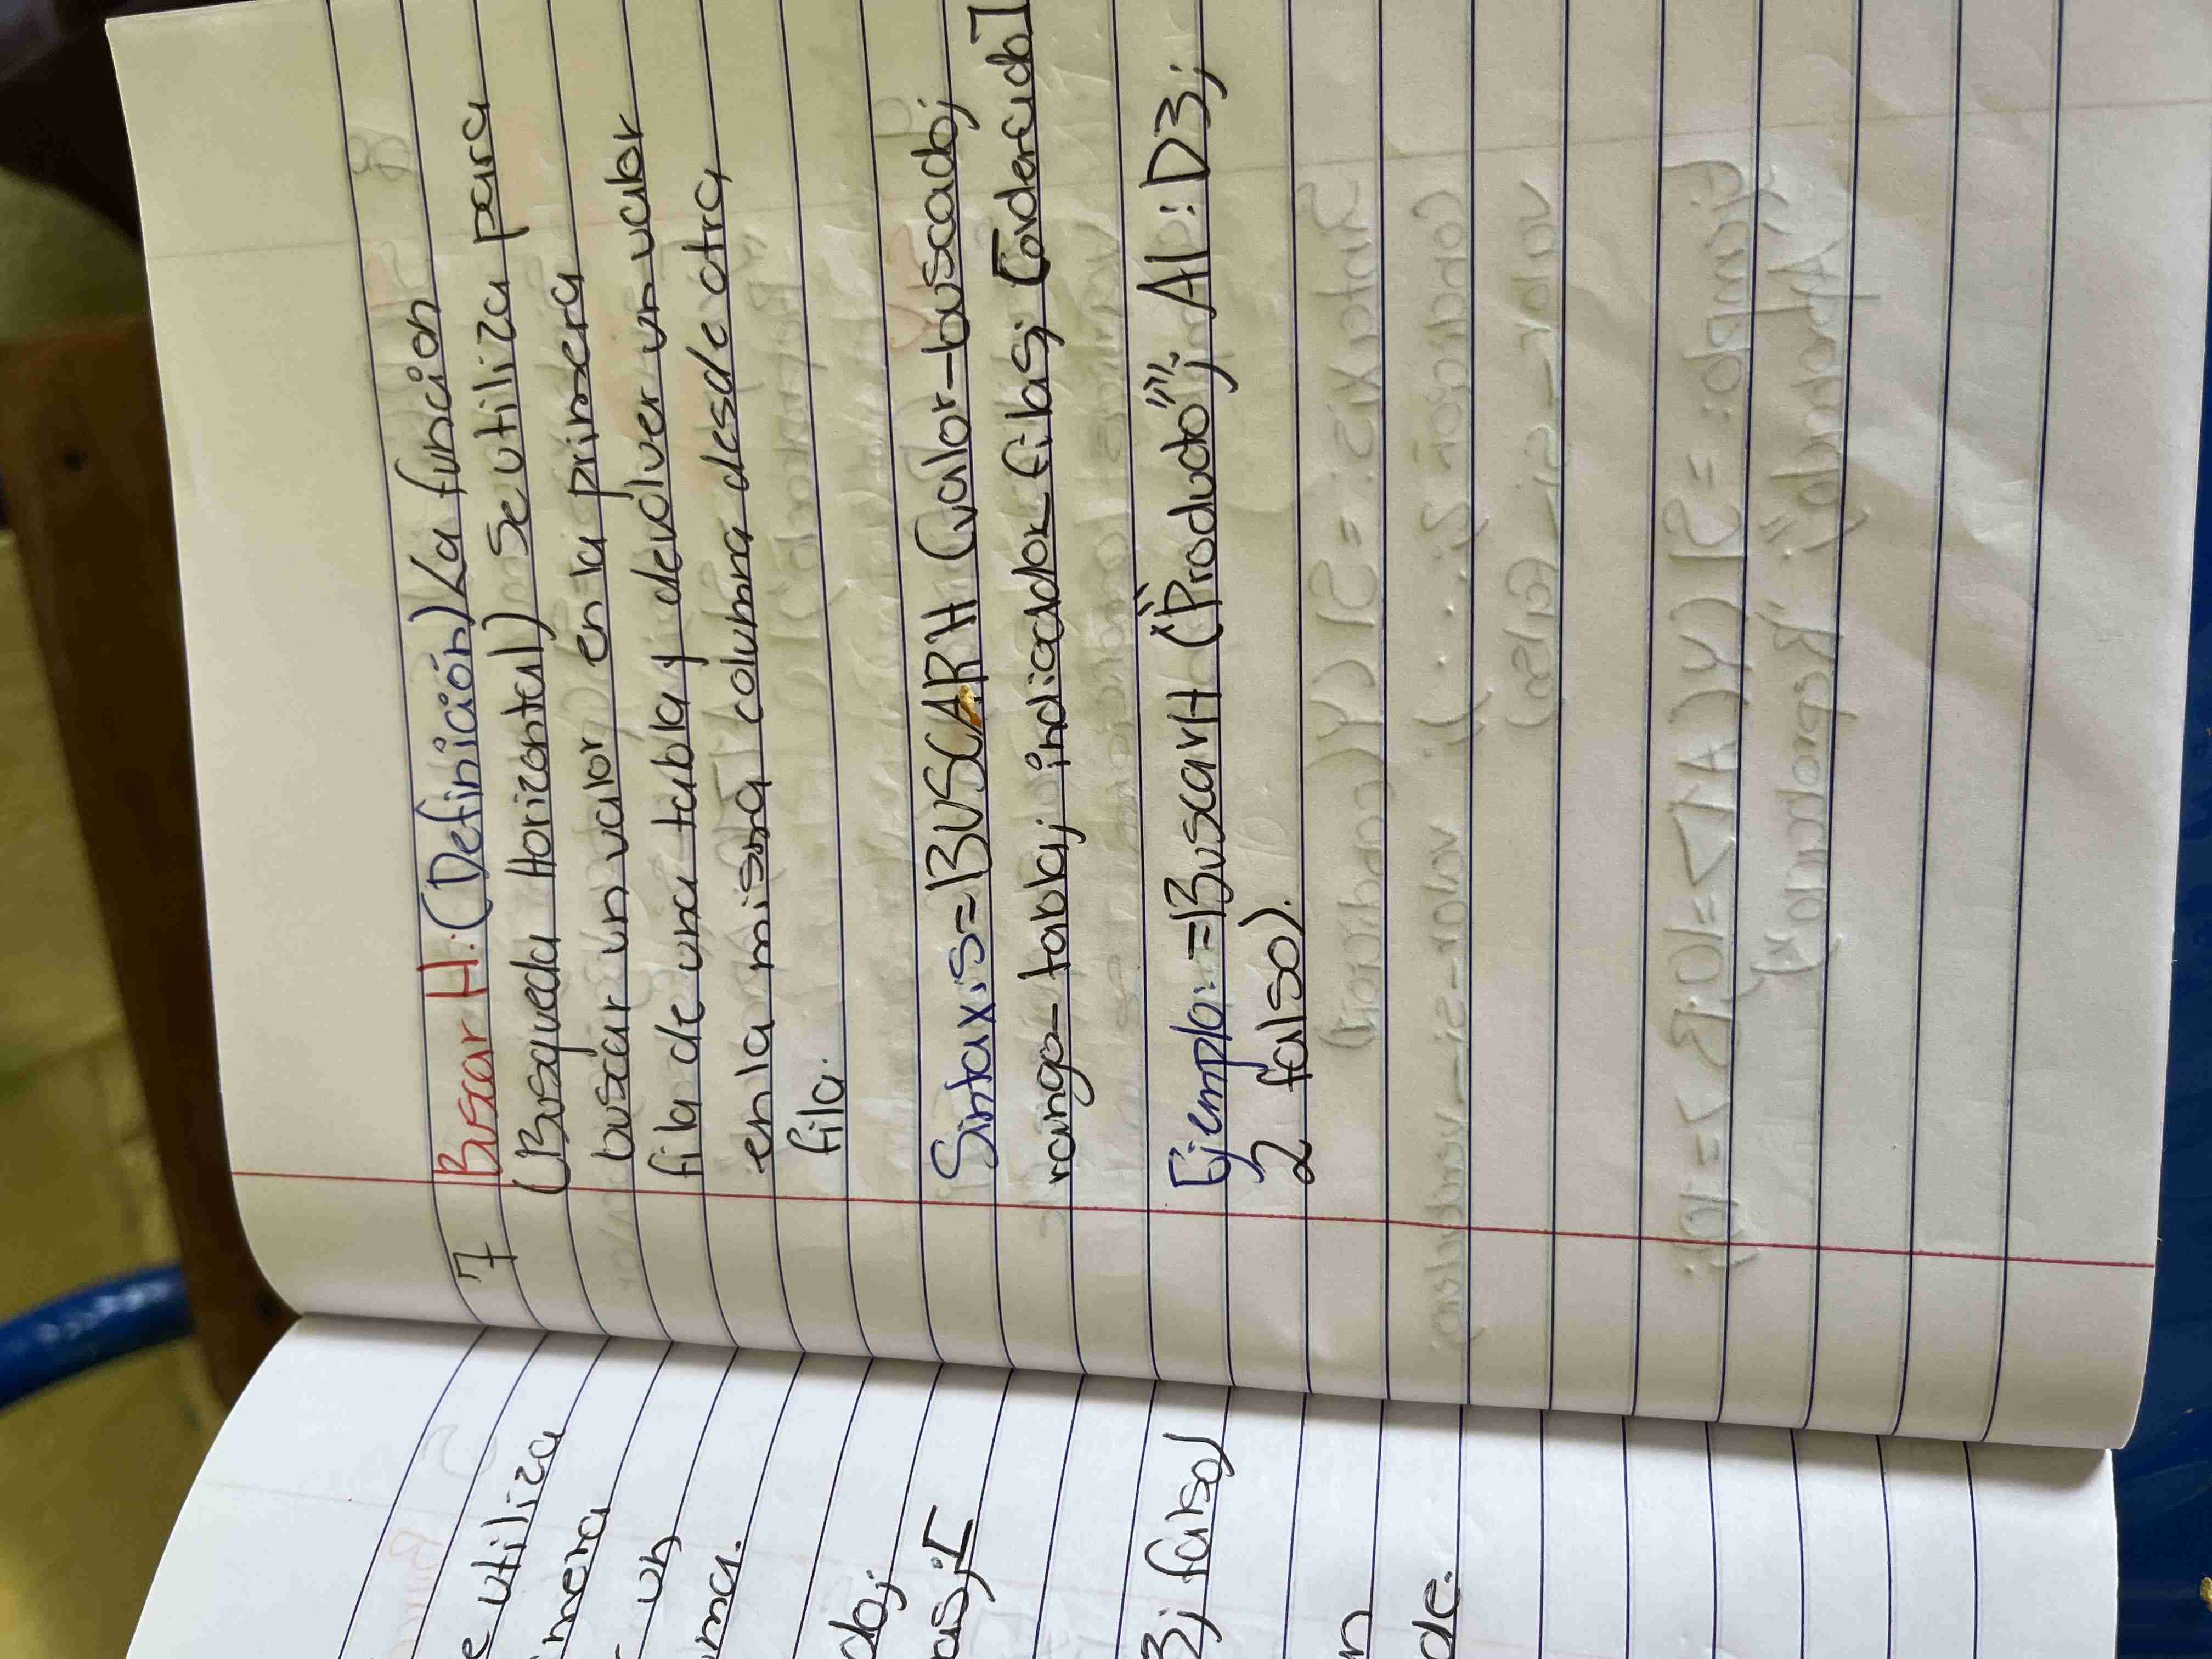 7 Buscar H: (Definición) La función
(Busqueda Horizontal) Se utiliza para
buscar un valor en la primera
fila de una tabla y devolver un valor
en la misma columna desde otra
fila.
Sintaxis = BUSCARH (valor-buscado;
rango-tabla; indicador-filas; [ordenado]
Ejemplo: = BuscarH ("Producto""; A1:D3;
2 falso).
e utiliza
mera
un
do;
as; [
3; falso)
n
de.